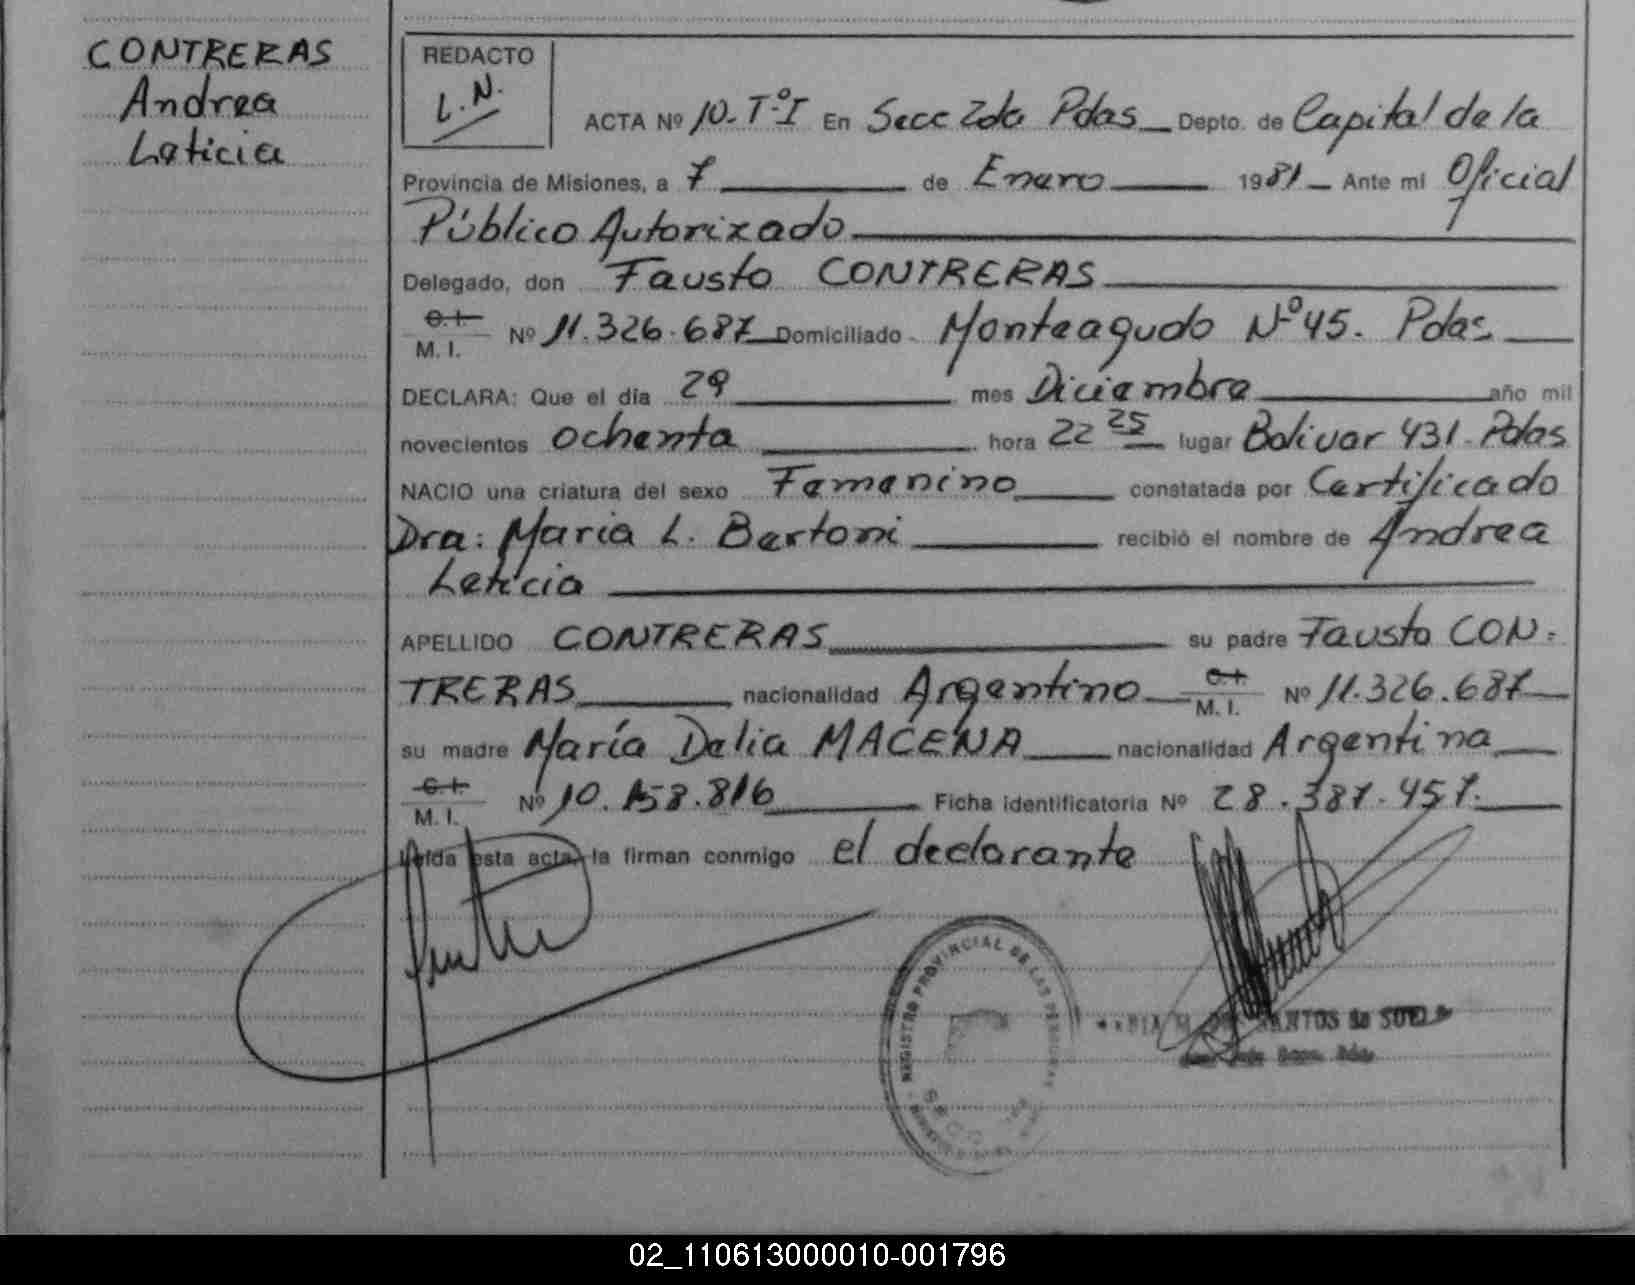 CONTRERAS
Andrea
Leticia
REDACTO
L.N.
ACTA Nº 10.TºI En Secc 2da Pdas Depto. de Capital de la
Provincia de Misiones, a 7 de Enero 1981 Ante mi Oficial
Público Autorizado
Delegado, don Fausto CONTRERAS
C.I.
M.I. Nº 11.326.687 Domiciliado Monteagudo Nº 45. Pdas
DECLARA: Que el día 29 mes Diciembre año mil
novecientos ochenta hora 22 25 lugar Bolivar 431. Pdas
NACIO una criatura del sexo Femenino constatada por Certificado
Dra: Maria L. Bertoni recibió el nombre de Andrea
Leticia
APELLIDO CONTRERAS su padre Fausto CON-
TRERAS nacionalidad Argentino C.I.
M.I. Nº 11.326.687
su madre María Delia MACENA nacionalidad Argentina
C.I.
M.I. Nº 10.158.816 Ficha identificatoria Nº 28.387.457.
Leída esta acta, la firman conmigo el declarante
REGISTRO PROVINCIAL DE LAS PERSONAS
SANTOS de
02_110613000010-001796